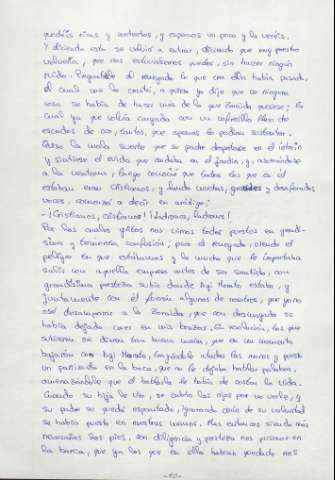 quedéis ricos y contentos, y esperaros un poco y lo veréis.
Y diciendo esto se volvió a entrar, diciendo que muy presto
volvería, que nos estuviésemos quedos, sin hacer ningún
ruido. Preguntéle al renegado lo que con ella había pasado,
el cual me lo contó, a quien yo dije que en ninguna
cosa se había de hacer más de lo que Zoraida quisiese; la
cual ya que volvía cargada con un cofrecillo lleno de
escudos de oro, tantos, que apenas lo podía sustentar.
Quiso la mala suerte que su padre despertase en el ínterin
y sintiese el ruido que andaba en el jardín, y, asomándose
a la ventana, luego conoció que todos los que en él
estaban eran cristianos; y dando muchas, grandes y desaforadas
voces, comenzó a decir en arábigo:
-¡Cristianos, cristianos! ¡Ladrones, ladrones!
Por los cuales gritos nos vimos todos puestos en grandí-
sima y temerosa confusión; pero el renegado, viendo el
peligro en que estábamos y lo mucho que le importaba
salir con aquella empresa antes de ser sentido, con
grandísima presteza subió donde Agi Morato estaba, y
juntamente con él fueron algunos de nosotros, que yo no
osé desamparar a la Zoraida, que como desmayada se
había dejado caer en mis brazos. En resolución, los que
subieron se dieron tan buena maña, que en un momento
bajaron con Agi Morato, trayéndole atadas las manos y puesto
un pañizuelo en la boca, que no le dejaba hablar palabra,
amenazándole que el hablarla le había de costar la vida.
Cuando su hija le vio, se cubrió los ojos por no verle, y
su padre se quedó espantado, ignorando cuán de su voluntad
se había puesto en nuestras manos. Mas entonces siendo más
necesarios los pies, con diligencia y presteza nos pusimos en
la barca, que ya los que en ella habían quedado nos